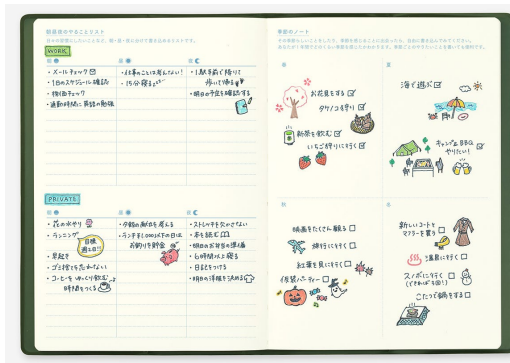 朝昼夜のやることリスト
WORK
朝
昼
夜
・メールチェック
・1日のスケジュール確認
・株価チェック
・通勤時間に英語の勉強
・仕事のことは考えない!
・15分寝る
・1駅手前で降りて
歩いて帰る
・明日の予定を確認する
PRIVATE
朝
昼
夜
・花の水やり
・ランニング
目標
週2日!!
・早起き
・ゴミ捨てを忘れない
・コーヒーをゆっくり飲む
時間をつくる
・夕飯の献立を考える
・ランチを1,000以下の日は
お釣りを貯金
・ストレッチを欠かさない
・本を読む
・明日のお弁当の準備
・6時間以上寝る
・日記をつける
・明日の洋服を決める
季節のノート
春
お花見をする
タケノコ狩り
新茶を飲む
いちご狩りに行く
夏
海で遊ぶ
キャンプ&BBQ
やりたい!
秋
映画をたくさん観る
旅行に行く
紅葉を見に行く
仮装パーティー
冬
新しいコートと
マフラーを買う
温泉に行く
スノボに行く
(できれば3回!)
こたつで鍋をする